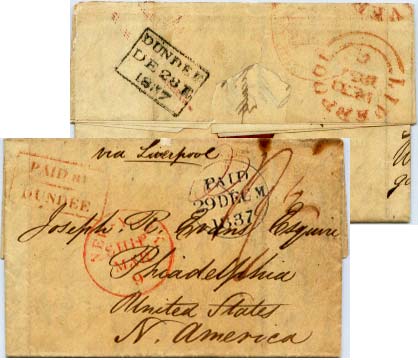 DUNDEE
DE 28 E
1837
LIVERPOOL
PAID AT
DUNDEE
via Liverpool
PAID
29 DEC M
1837
SHIP
MAR
9
Joseph R. Evans Esquire
Phiadelphia
United States
N. America